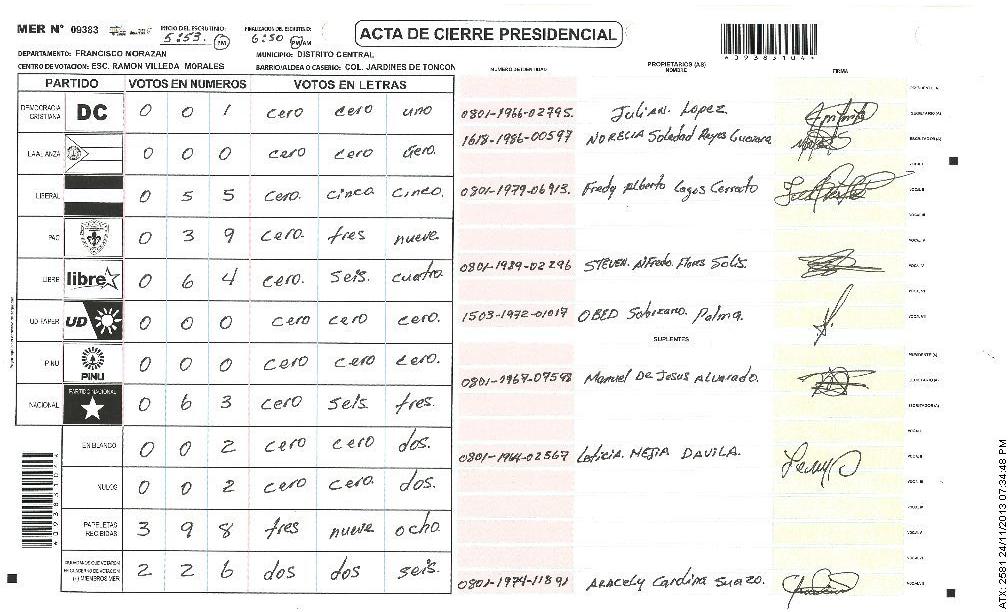 MER Nº 09383 INICIO DEL ESCRUTINIO: 5:53. PM FINALIZACION DEL ESCRUTINIO: 6:50 PM/AM
ACTA DE CIERRE PRESIDENCIAL
DEPARTAMENTO: FRANCISCO MORAZAN MUNICIPIO: DISTRITO CENTRAL
CENTRO DE VOTACION: ESC. RAMON VILLEDA MORALES BARRIO/ALDEA O CASERIO: COL. JARDINES DE TONCON
PARTIDO VOTOS EN NUMEROS VOTOS EN LETRAS
DEMOCRACIA CRISTIANA DC 0 0 1 cero cero uno
LA ALIANZA 0 0 0 cero cero cero.
LIBERAL 0 5 5 cero. cinco cinco.
PAC 0 3 9 cero. tres nueve.
LIBRE libre 0 6 4 cero. seis. cuatro
UD FAPER UD 0 0 0 cero cero cero.
PINU PINU 0 0 0 cero cero cero.
NACIONAL PARTIDO NACIONAL 0 6 3 cero seis tres.
EN BLANCO 0 0 2 cero cero dos.
NULOS 0 0 2 cero cero. dos.
PAPELETAS RECIBIDAS 3 9 8 tres nueve ocho
(+) MIEMBROS MER 2 2 6 dos dos seis.
NUMERO DE IDENTIDAD PROPIETARIOS (AS) NOMBRE FIRMA
0801-1966-02795. Julian. Lopez.
1618-1986-00597 NORECIA Soledad Reyes Guevara
0801-1979-06913. Fredy Alberto Lagos Cerrato
0801-1989-02296 STEVEN. Alfredo. Flores Solis.
1503-1972-01017 OBED Sobizano. Palma.
SUPLENTES
0801-1967-07598 Manuel De Jesus Alvarado.
0801-1964-02567 Leticia. MEJIA DAVILA.
0801-1974-11891 Aracely Cardina Suazo.
ATX: 2581 24/11/2013 07:34:48 PM